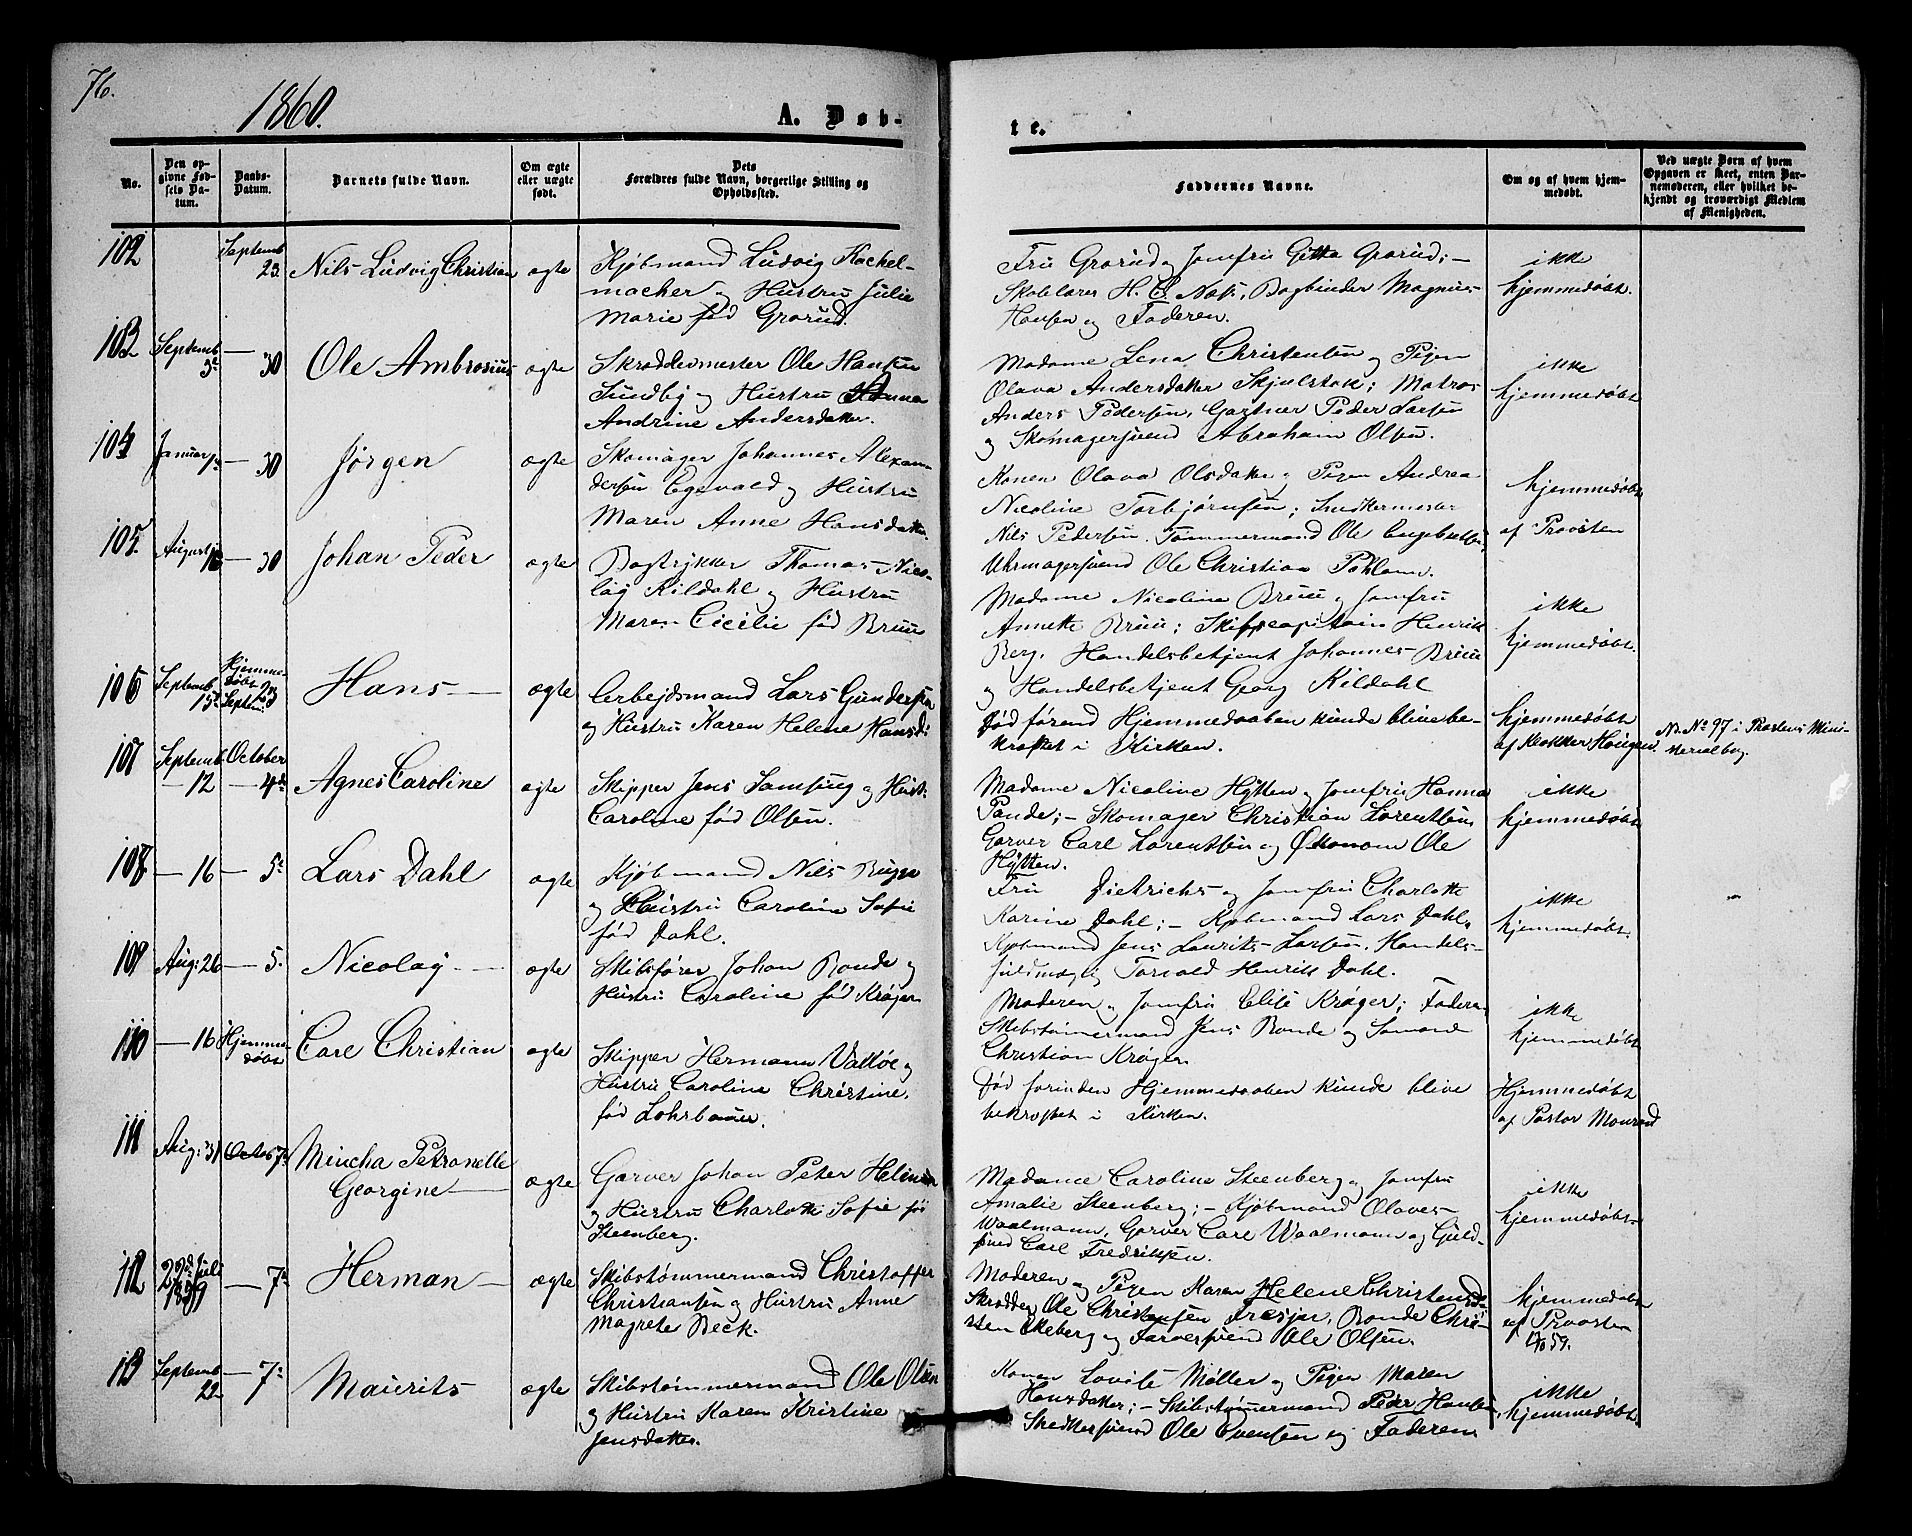 76.
1860.
A. Døb-
te.
No.
Den op-
givne Fød-
sels Da-
tum.
Daabs-
Datum.
Barnets fulde Navn.
Om ægte
eller uægte
født.
Dets
Forældres fulde Navn, borgerlige Stilling og
Opholdssted.
Faddernes Navne.
Om og af hvem hjem-
medøbt.
Ved uægte Børn af hvem
Opgaven er skeet, enten Bar-
nemoderen, eller hvilket be-
kjendt og troværdigt Medlem
af Menigheden.
102
Septemb
23.
Nils Ludvig Christian
ægte
Kjøbmand Ludvig Kachel-
macher og Hustru Julie
Marie fød Grorud.
Fru Grorud og Jomfru Gitta Grorud; —
Skolelærer H. C. Næs, Bogbinder Magnus
Hansen og Faderen.
ikke
hjemmedøbt.
103
Septemb
3d
— 30
Ole Ambrosius
ægte
Skræddermester Ole Hansen
Sundby og Hustru Anna
Andrine Andersdatter.
Madame Lena Christensen og Pigen
Olava Andersdatter Skjulstok; Matros
Anders Pedersen, Gartner Peder Larsen
og Skomagersvend Abraham Olsen.
ikke
hjemmedøbt
104
Januar
— 30
Jørgen
ægte
Skomager Johannes Alexan-
dersen Egevald og Hustru
Maren Anne Hansdatter.
Konen Olava Olsdatter, Pigen Andrea
Nicoline Torbjørnsen; Snedkermester
Nils Pedersen, Tømmermand Ole Engebretsen,
Uhrmagersvend Ole Christian Pohlman.
hjemmedøbt
af Provsten
105.
August 16
— 30
Johan Peder
ægte
Bogtrykker Thomas Nico-
lay Kildahl og Hustru
Maren Cicilie fød Bruu
Madame Nicoline Bruu og Jomfru
Annette Bruu; Skibscapitain Henrik
Berg, Handelsbetjent Johannes Bruu
og Handelsbetjent Georg Kildahl
ikke
hjemmedøbt.
106
Septemb
15d
Hjemme-
døbt 23
Septem:
Hans —
ægte
Arbejdsmand Lars Gundersen
og Hustru Karen Helene Hansd:
Død førend Hjemmedaaben kunde blive be-
kræftet i Kirken.
hjemmedøbt
af Klokker Haugen.
Nr. No 97 i Provstens Mini-
sterialbog.
107
Septemb
— 12
October
— 4de
Agnes Caroline
ægte
Skipper Jens Samsing og Hust.
Caroline fød Olsen.
Madame Nicoline Hytten og Jomfru Hanna
Pande; — Skomager Christian Lorentsen,
Garver Carl Lorentsen og Økonom Ole
Hytten.
ikke
hjemmedøbt
108
— 16
— 5te
Lars Dahl
ægte
Kjøbmand Nils Bugge
og Hustru Caroline Sofie
fød Dahl.
Fru Dietrichs og Jomfru Charlotte
Karine Dahl; — Kjøbmand Lars Dahl,
Kjøbmand Jens Laurits Larsen, Handels-
fuldmægtig Torvald Henrik Dahl.
ikke
hjemmedøbt.
109
Aug: 26
— 5.
Nicolay —
ægte
Skibsfører Johan Bonde og
Hustru Caroline fød Krøger
Moderen og Jomfru Elise Krøger; Faderen
Skibstømmermand Jens Bonde og Sømand
Christian Krøger
ikke
hjemmedøbt
110
— 16
Hjemme-
døbt
Carl Christian
ægte
Skipper Hermann Valløe og
Hustru Caroline Christine,
fød Lohrbauer.
Død forinden Hjemmedaaben kunde blive
bekræftet i Kirken.
Hjemmedøbt
af Pastor Monrad
111
Aug: 31
Octob 7de
Mincha Petronelle
Georgine —
ægte
Garver Johan Peter
og Hustru Charlotte Sofie fød
Steenberg.
Madame Caroline Steenberg og Jomfru
Amalie Steenberg; — Kjøbmand Olaves
Waalmann, Garver Carl Waalmann og Guld-
svend Carl Fredriksen.
ikke
hjemmedøbt
112
22de Juli
1859
— 7de
Herman —
ægte
Skibstømmermand Christoffer
Christiansen og Hustru Anne
Magrete Beck.
Moderen og Pigen Karen Helene Christensd.
Skrædder Ole Christensen Tresjør, Bonde Chri-
sten Ekeberg og Farversvend Ole Olsen.
hjemmedøbt
af Provsten
59.
113
Septemb
29
— 7de
Maurits
ægte
Skibstømmermand Ole Olsen
og Hustru Karen Kristine
Jensdatter.
Konen Lovise Møller og Pigen Maren
Hansdatter; — Skibstømmermand Peder Hansen,
Snedkersvend Ole Evensen og Faderen
ikke
hjemmedøbt.